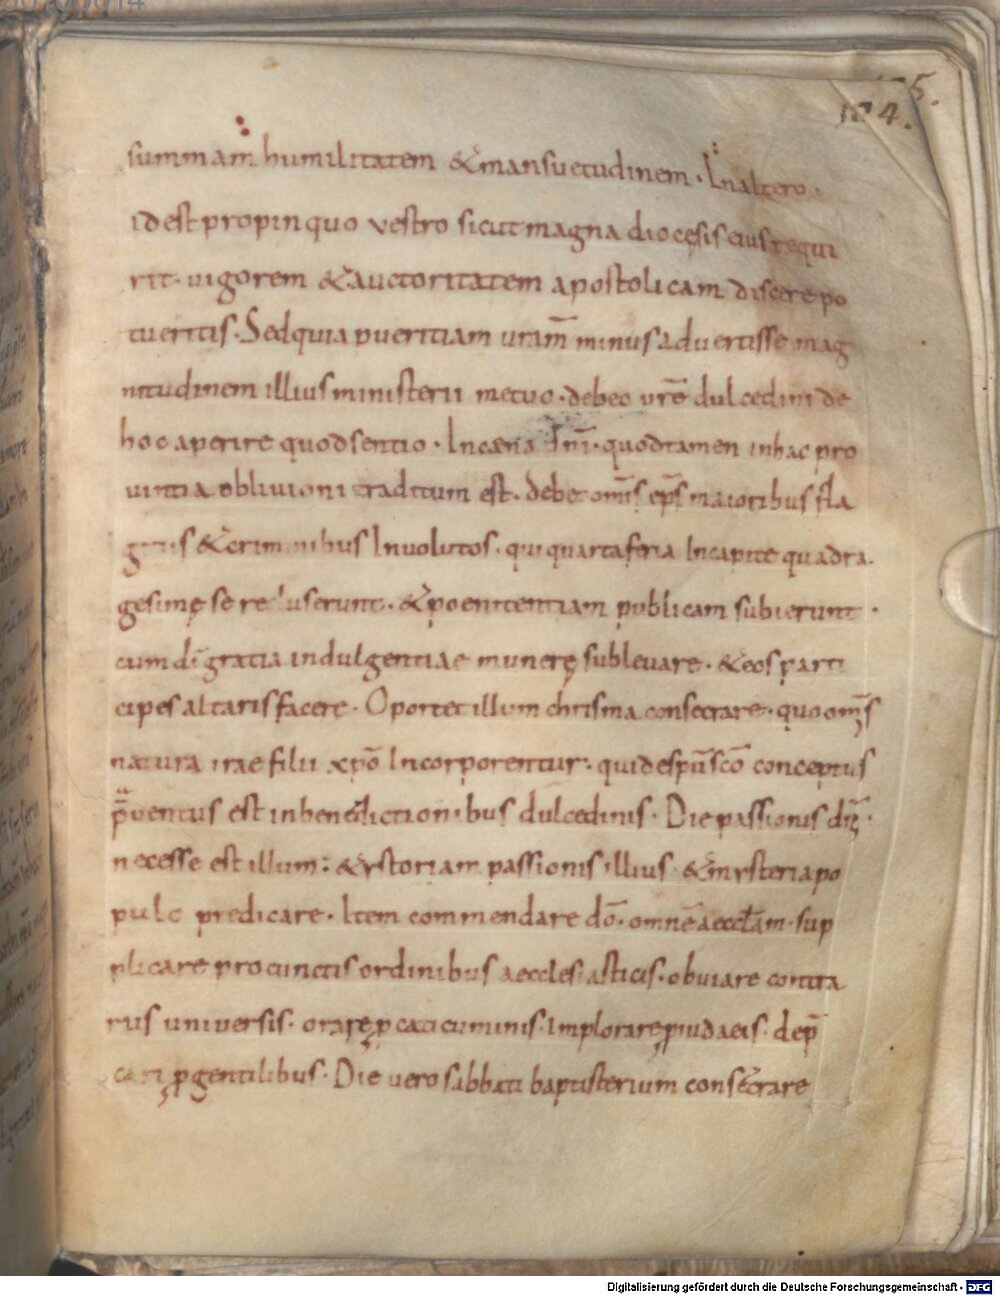 104.
summam humilitatem & mansuetudinem. In altero.
id est propinquo vestro sicut magna diocęsis eius requi
rit. vigorem & auctoritatem apostolicam discere po
tueritis. Sed quia pueritiam vram̄ minus advertisse mag
nitudinem illius ministerii metuo. debeo vrē dulcedini de
hoc aperire quod sentio. In cæna dnī. quod tamen in hac pro
vintia oblivioni traditum est. debet om̄s ep̄s maioribus fla
& criminibus Involutos. qui quarta feria In capite quadra.
gesimę se recluserunt. & poenitentiam publicam subierunt.
cum dī gratia indulgentiae munerę sublevare. & eos parti
cipes altaris facere. Oportet illum chrisma consecrare. quo om̄s
natura irae filii xp̄o Incorporentur. qui de sp̄u sc̄o conceptus
p̄ventus est in benedictionibus dulcedinis. Die passionis dn̄i.
necesse est illum: & ystoriam passionis illius & mysteria po
pulo predicare. Item commendare dō. omnē aeccłam. sup
plicare pro cunctis ordinibus aecclesiasticis. obviare contra
rus universis. orare p catícuminis. Implorare p iudaeis. dep̄
cari p gentilibus. Die vero sabbati baptisterium consecrare
Digitalisierung gefördert durch die Deutsche Forschungsgemeinschaft - DFG